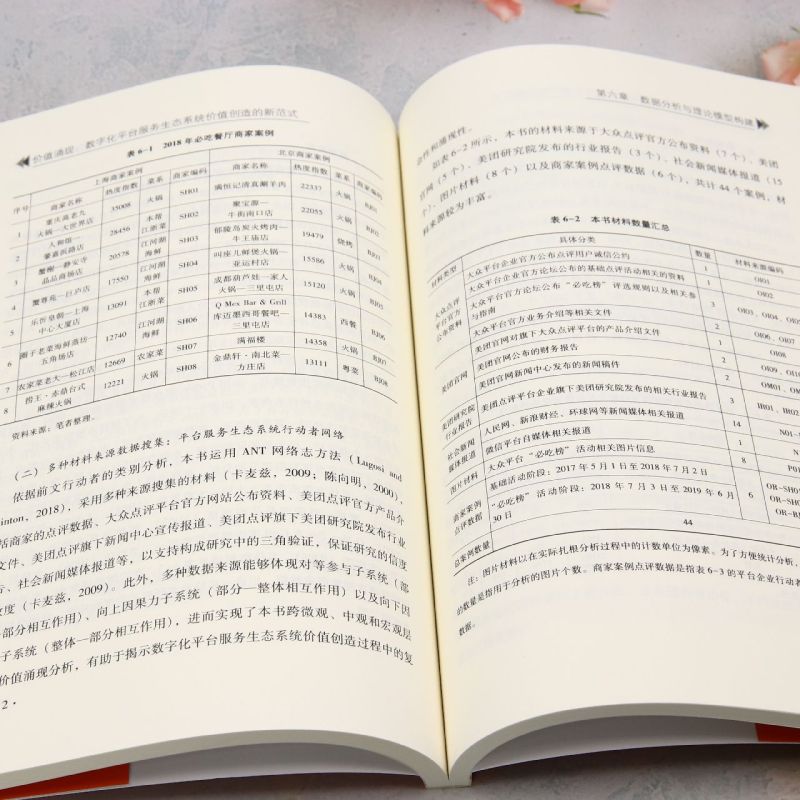 价值涌现：数字化平台服务生态系统价值创造的新范式
表 6-1 2018 年必吃餐厅商家案例
上海商家案例 北京商家案例
序号 商家名称 热度指数 菜系 商家编码 商家名称 热度指数 菜系 商家编码
1 重庆高老九火锅—大世界店 35008 火锅 SH01 满恒记清真涮羊肉 22337 火锅 BJ01
2 人和馆—肇嘉浜路店 28456 本帮江浙菜 SH02 聚宝源—牛街南口店 22055 火锅 BJ02
3 蟹榭—静安寺晶品商场店 20578 江河湖海鲜 SH03 郁陵岛炭火烤肉—牛王庙店 19479 烧烤 BJ03
4 蟹尊苑—巨庐店 17550 江河湖海鲜 SH04 叫座儿鲜煲火锅—亚运村店 15586 火锅 BJ04
5 乐忻皇朝—上海中心大厦店 13091 本帮江浙菜 SH05 成都葫芦娃一家人火锅—三里屯店 15120 火锅 BJ05
6 圈子老菜海鲜蒸坊—五角场店 12740 江河湖海鲜 SH06 Q Mex Bar & Grill 库迈墨西哥餐吧—三里屯店 14383 西餐 BJ06
7 农家菜老大—松江店 12669 农家菜 SH07 满福楼 14358 火锅 BJ07
8 捞王·赤鼎台式麻辣火锅 12221 火锅 SH08 金鼎轩·南北菜—方庄店 13111 粤菜 BJ08
资料来源：笔者整理。
（二）多种材料来源数据搜集：平台服务生态系统行动者网络
依据前文行动者的类别分析，本书运用 ANT 网络志方法（Lugosi and
inton，2018），采用多种来源搜集的材料（卡麦兹，2009；陈向明，2000），
活商家的点评数据、大众点评平台官方网站公布资料、美团点评官方产品介
文件、美团点评旗下新闻中心宣传报道、美团点评旗下美团研究院发布行业
告、社会新闻媒体报道等，以支持构成研究中的三角验证，保证研究的信度
效度（卡麦兹，2009）。此外，多种数据来源能够体现对等参与子系统（部
—部分相互作用）、向上因果力子系统（部分—整体相互作用）以及向下因
子系统（整体—部分相互作用），进而实现了本书跨微观、中观和宏观层
价值涌现分析，有助于揭示数字化平台服务生态系统价值创造过程中的复
2 ·
第六章 数据分析与理论模型构建
杂性和涌现性。
如表 6-2 所示，本书的材料来源于大众点评官方公布资料（7 个）、美团
官网（5 个）、美团研究院发布的行业报告（3 个）、社会新闻媒体报道（15
个）、图片材料（8 个）以及商家案例点评数据（6 个），共计 44 个案例，材
料来源较为丰富。
表 6-2 本书材料数量汇总
材料类型 具体分类 数量 材料来源编码
大众点评平台官方公布资料 大众平台企业官方公布点评用户诚信公约 1 OI01
大众平台企业官方论坛公布的基础点评活动相关的资料 1 OI02
大众平台企业官方论坛公布“必吃榜”评选规则以及相关参与指南 3 OI03、OI04、
大众平台官方业务介绍等相关文件 2 OI06、OI07
美团官网 美团官网对旗下大众点评平台的产品介绍文件 1 OI08
美团官网公布的财务报告 2 OI09、
美团官网新闻中心发布的新闻稿件 2 OM01、
美团研究院行业报告 美团点评平台企业旗下美团研究院发布的相关行业报告 3 IR01、IR02、
社会新闻媒体报道 人民网、新浪财经、环球网等新闻媒体相关报道 14 N01-
微信平台自媒体相关报道 1
图片材料 大众平台“必吃榜”活动相关图片信息 8 P01
商家案例点评数据 基础活动阶段：2017 年 5 月 1 日至 2018 年 7 月 2 日
“必吃榜”活动阶段：2018 年 7 月 3 日至 2019 年 6 月 30 日 6
总案例数量 44
注：图片材料以在实际扎根分析过程中的计数单位为像素。为了方便统计分析，
的数量是指用于分析的图片个数。商家案例点评数据是指表 6-3 的平台企业行动者
数据。